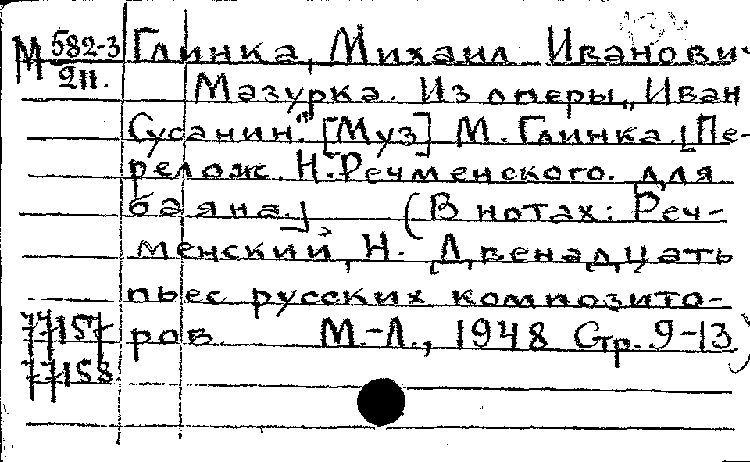 М 582-3 Глинка, Михаил Иванович
2н. Мазурка. Из оперы „Иван
Сусанин". [Муз] М. Глинка. [Пе-
релож. Н. Речменского. для
баяна.] (В нотах: Реч-
менский, Н. Двенадцать
пьес русских композито-
ров. М.-Л., 1948 Стр. 9-13)